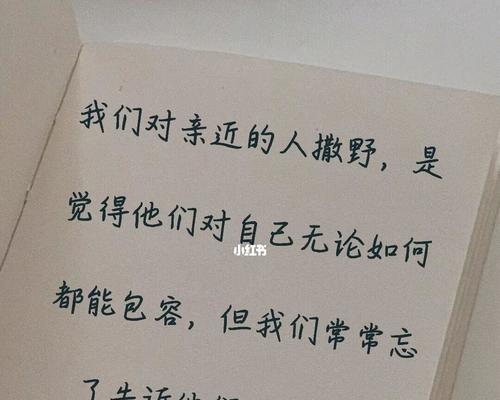 我们对亲近的人撒野，是
觉得他们对自己无论如何
小红书
都能包容，但我们常常忘
了告诉他们